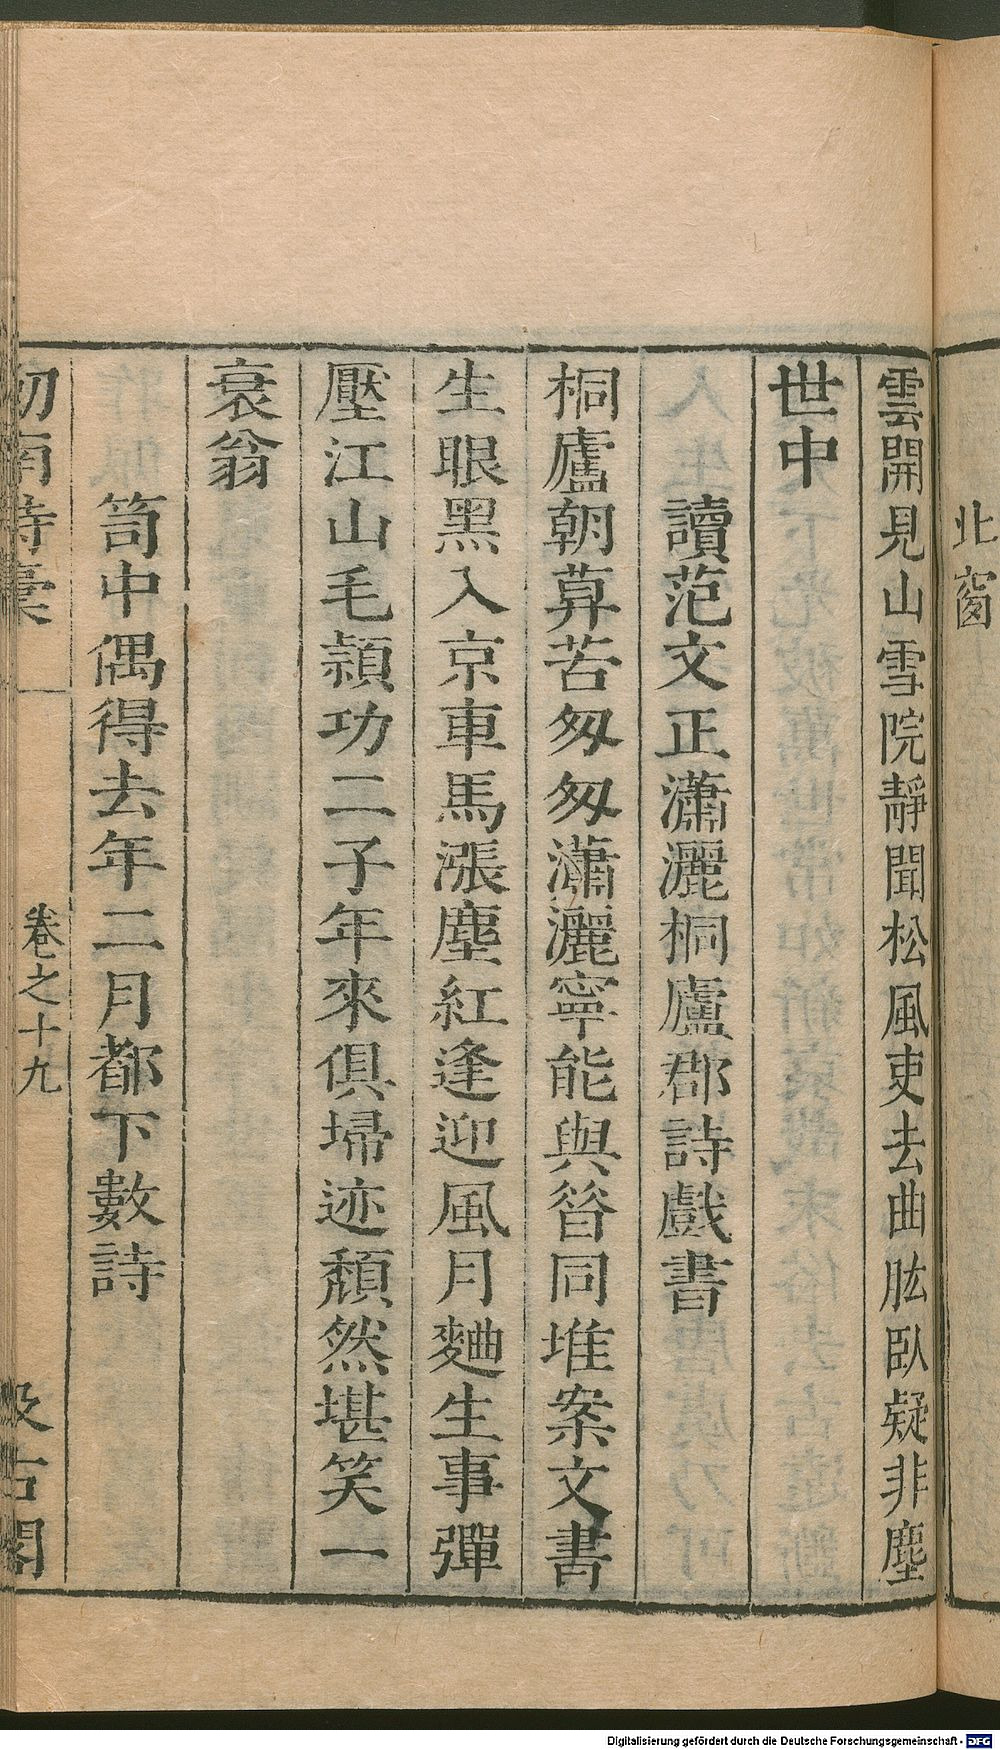 北窗
雲開見山雪院靜聞松風吏去曲肱臥疑非塵
世中
讀范文正瀟灑桐廬郡詩戲書
桐廬朝莫苦匆匆瀟灑寧能與昝同堆案文書
生眼黑入京車馬漲塵紅逢迎風月麯生事彈
壓江山毛穎功二子年來俱埽迹頹然堪笑一
衰翁
笥中偶得去年二月都下數詩
劒南詩稾
卷之十九
汲古閣
Digitalisierung gefördert durch die Deutsche Forschungsgemeinschaft - DFG